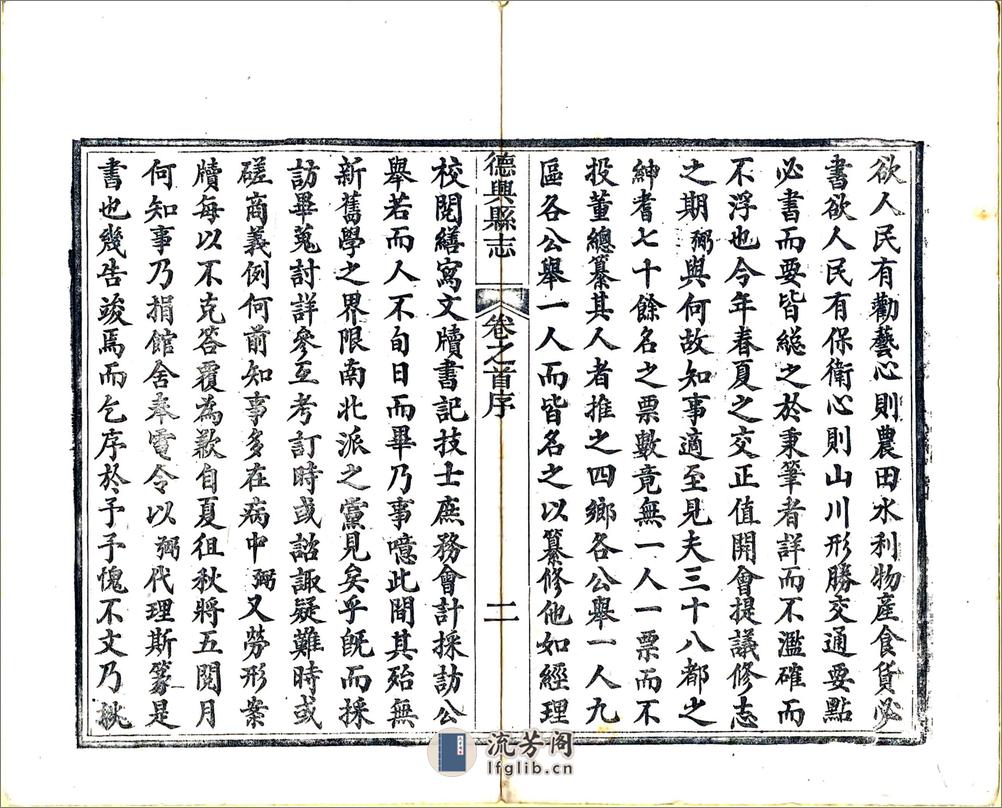 欲人民有勸藝心則農田水利物產食貨必
書欲人民有保衛心則山川形勝交通要點
必書而要皆總之於秉筆者詳而不濫確而
不浮也今年春夏之交正值開會提議修志
之期弼與何故知事適至見夫三十八都之
紳耆七十餘名之票數竟無一人一票而不
投董總纂其人者推之四鄉各公舉一人九
區各公舉一人而皆名之以纂修他如經理
德興縣志
卷之首序
二
校閱繕寫文牘書記技士庶務會計採訪公
舉若而人不旬日而畢乃事噫此間其殆無
新舊學之界限南北派之黨見矣乎旣而採
訪畢蒐討詳參互考訂時或諮諏疑難時或
磋商義例何前知事多在病中弼又勞形案
牘每以不克答覆為歉自夏徂秋將五閱月
何知事乃捐館舍奉電令以弼代理斯篆是
書也幾告竣焉而乞序於予予愧不文乃挑
流芳阁
lfglib.cn